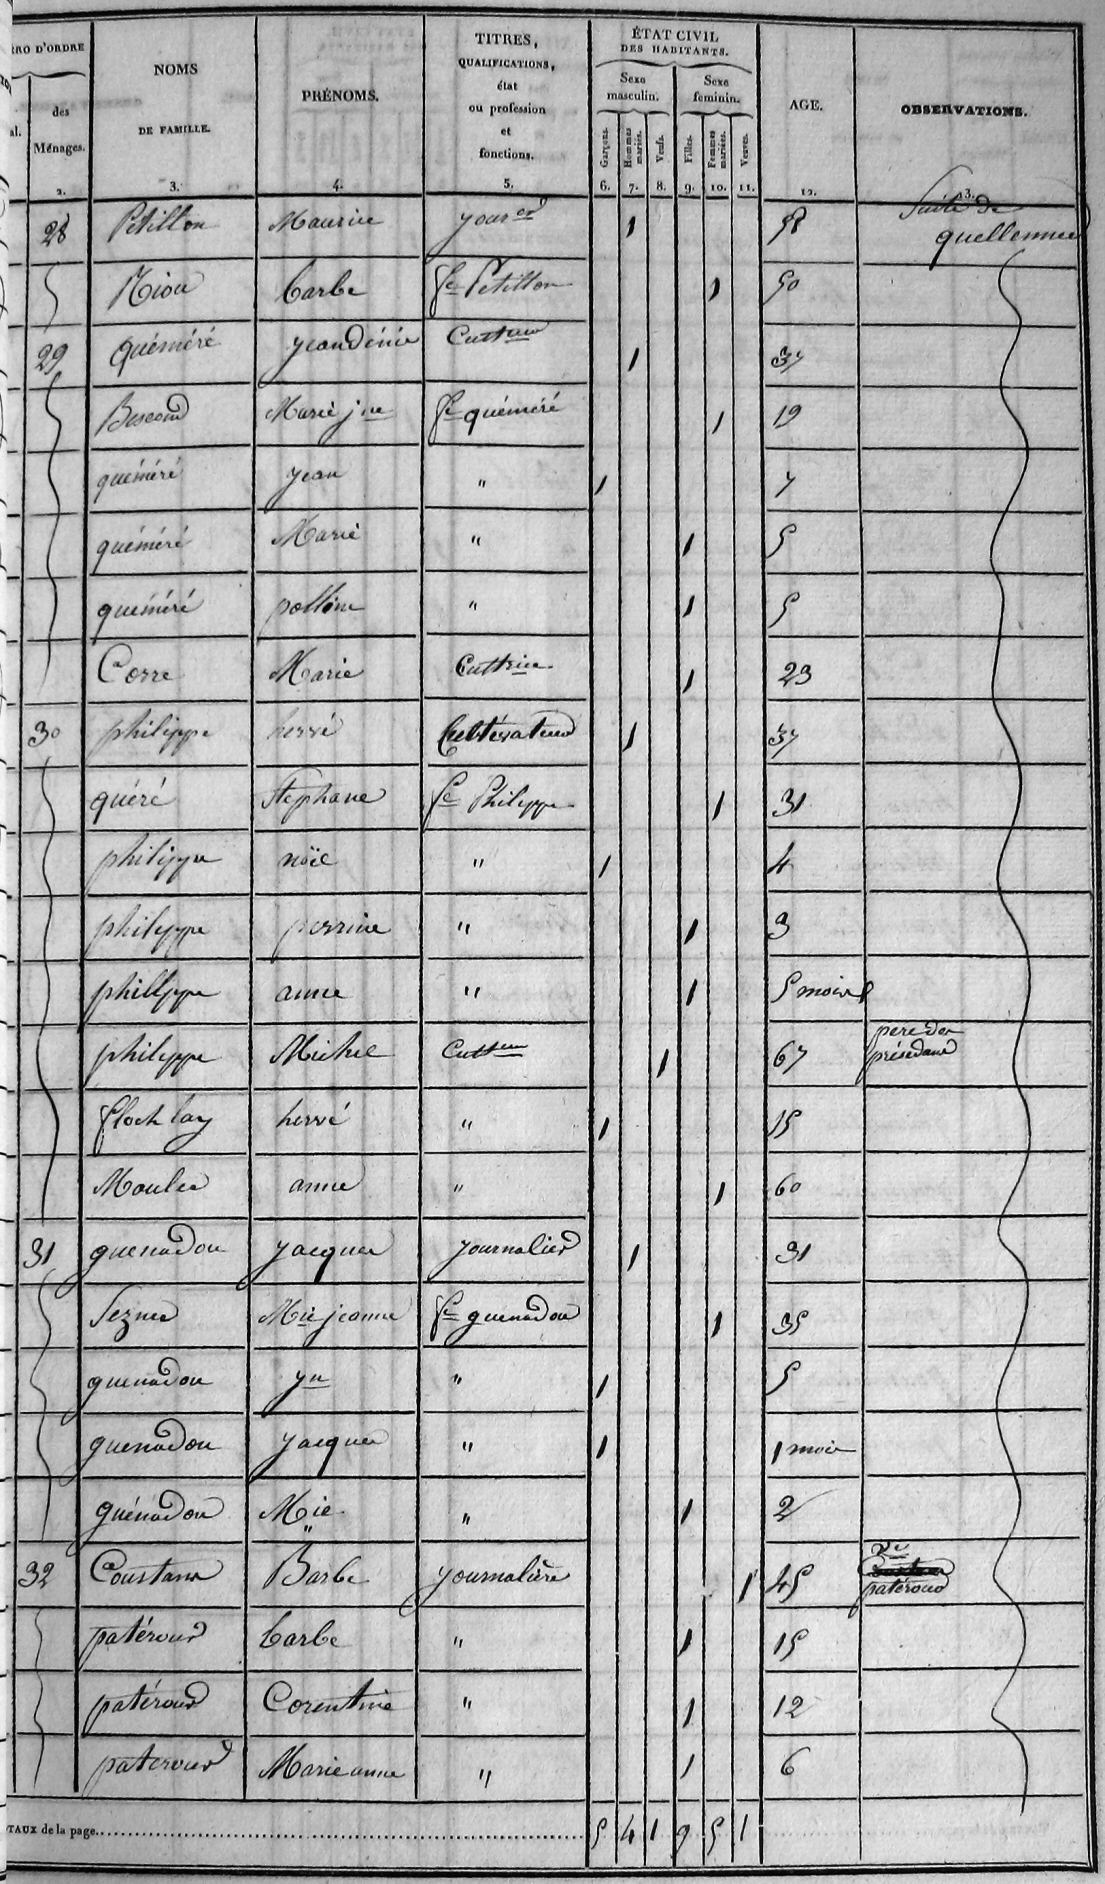 RO D'ORDRE
al.
des
Ménages.
2.
NOMS
DE FAMILLE.
3.
PRÉNOMS.
4.
TITRES,
QUALIFICATIONS,
état
ou profession
et
fonctions.
5.
ÉTAT CIVIL
DES HABITANTS.
Sexe
masculin.
Sexe
feminin.
Garçons.
Hommes mariés.
Veufs.
Filles.
Femmes mariées.
Veuves.
6. 7. 8. 9. 10. 11.
AGE.
12.
OBSERVATIONS.
13.
Suite de
quellennec
28 Petillon Maurice your er 1 58
Riou barbe fe Petillon 1 50
29 Quéméré yean dénie Culteur 1 37
Bescond Marie jne fe quéméré 1 19
quéméré yean " 1 7
quéméré Marie " 1 5
quéméré polline " 1 5
Corre Marie Cultrice 1 23
30 philippe hervé Cultivateur 1 37
quéré Stephane fe Philippe 1 31
philippe noël " 1 4
philippe perrine " 1 3
philippe anne " 1 5 mois
philippe Michel Culteur 1 67 pere du
présedand
floch lay hervé " 1 15
Moulec anne " 1 60
31 guenadou yacques journalier 1 31
Seznec Mie jeanne fe guenadou 1 35
guenadou yn " 1 5
guenadou yacques " 1 1 mois
guénadou Mie " 1 2
32 Coustans Barbe journalière 1 45 ve
patéroud
patéroud barbe " 1 15
patéroud Corentine " 1 12
pateroud Marie anne " 1 6
TAUX de la page 5 4 1 9 5 1